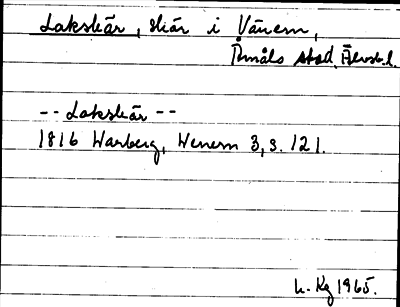 Lakskär, skär i Vänern,
Åmåls stad, Älvsb.l.
-- Lakskär --
1816 Warberg, Wenern 3, s. 121.
L. Kg 1965.